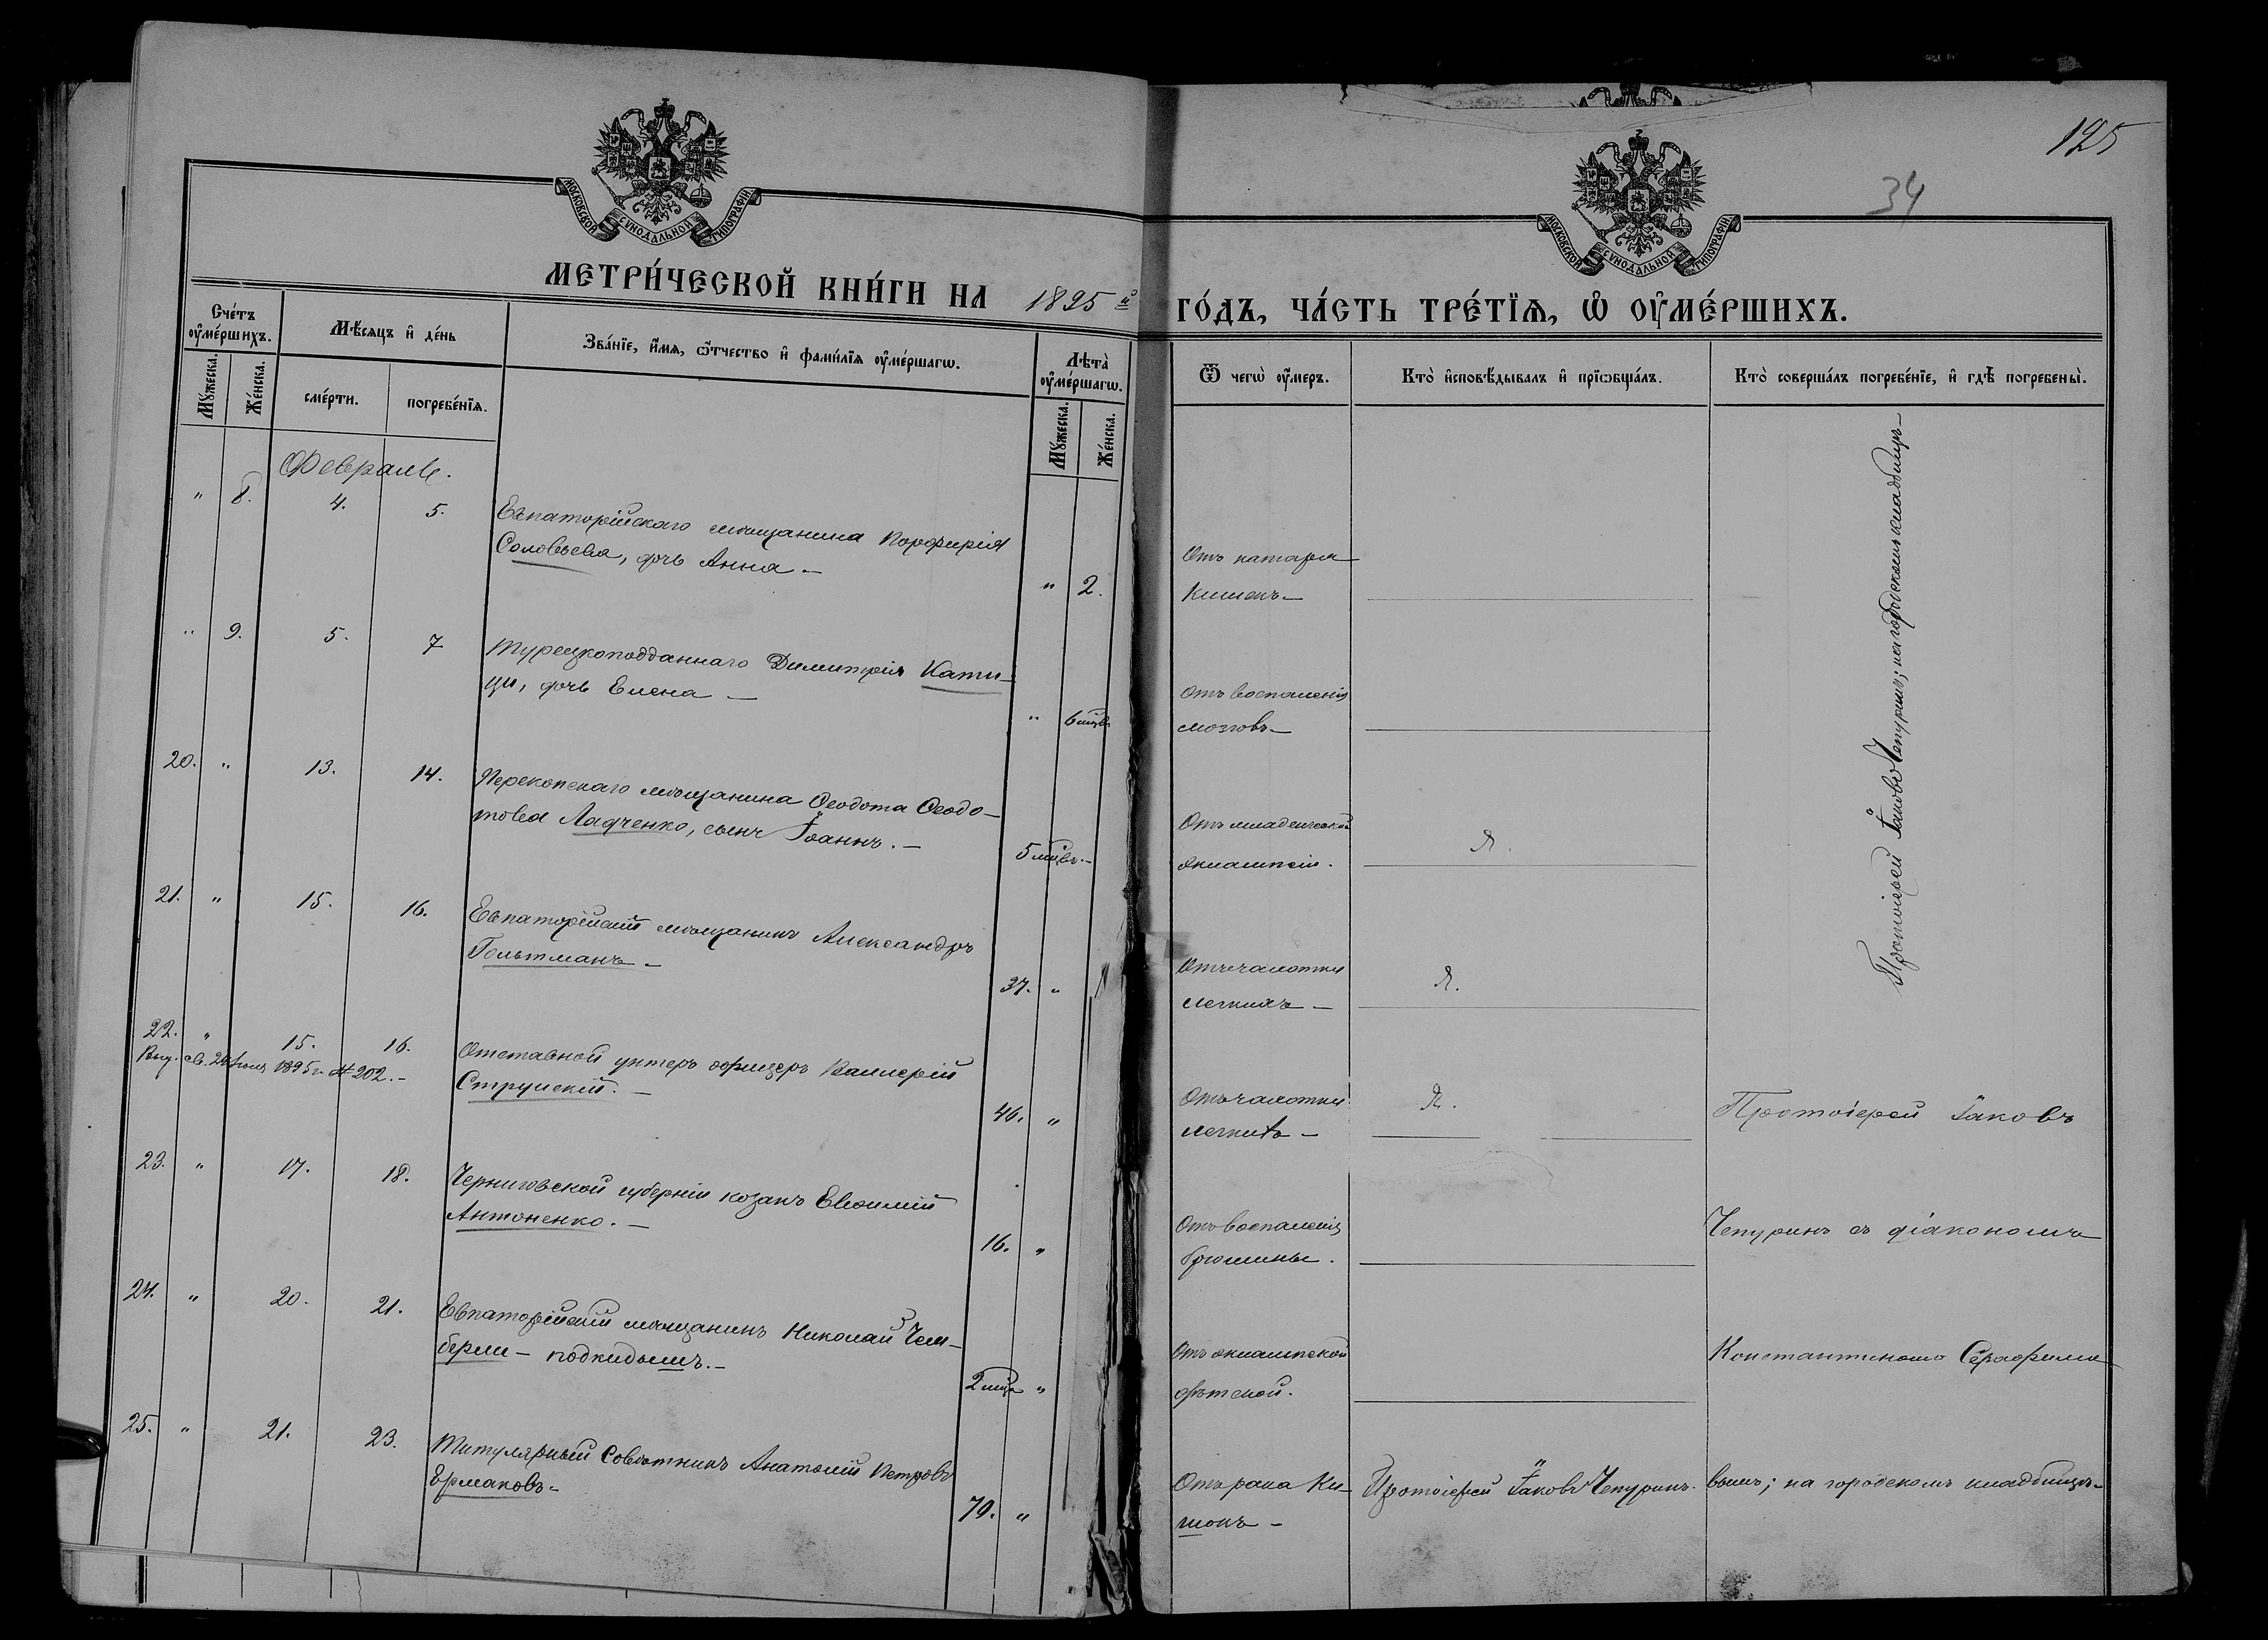 125
34
МОСКОВСКОЙ СѴНОДАЛЬНОЙ ТИПОГРАФІИ
МОСКОВСКОЙ СѴНОДАЛЬНОЙ ТИПОГРАФІИ
МЕТРИ́ЧЕСКОЙ КНИ́ГИ НА 1895й ГО́ДЪ, ЧА́СТЬ ТРЕ́ТЇѦ, Ѡ҆ ОУ҆МЕ́РШИХЪ.
Сче́тъ оу҆ме́ршихъ.
Мꙋ́жеска.
Же́нска.
Мѣ́сѧцъ и҆ де́нь
сме́рти.
погребе́нїѧ.
Зва́нїе, и҆́мѧ, ѻ҆́тчество и҆ фами́лїѧ оу҆ме́ршагѡ.
Лѣта̀ оу҆ме́ршагѡ.
Мꙋ́жеска.
Же́нска.
Ѿ чегѡ̀ оу҆́меръ.
Кто̀ и҆сповѣ́дывалъ и҆ прїѡбща́лъ.
Кто̀ соверша́лъ погребе́нїе, и҆ гдѣ̀ погребены̀.
Февраль.
" 8. 4. 5. Евпаторійскаго мѣщанина Порфирія
Соловьева, дочь Анна –
" 2.
Отъ катара
кишекъ –
" 9. 5. 7 Турецкоподданнаго Димитрія Кати-
ци, дочь Елена –
" 6 мцв
Отъ воспаленія
мозговъ –
20. " 13. 14. Перекопскаго мѣщанина Ѳеодота Ѳеодо-
това Ладченко, сынъ Іоаннъ. –
5 мцвъ. –
Отъ младенческой
эклампсіи.
Я.
21. " 15. 16. Евпаторійскій мѣщанинъ Александръ
Гольтманъ –
37. "
Отъ чахотки
легкихъ –
Я.
Протоіерей Іаковъ Чепуринъ; на городскомъ кладбищѣ –
22. " 15. 16. Отставной унтеръ офицеръ Валерій
Струнскій. –
1895 г. № 202. –
46. "
Отъ чахотки
легкихъ –
Я.
Протоіерей Іаковъ
23. " 17. 18. Черниговской губерніи козакъ Евѳимій
Антоненко. –
16. "
Отъ воспаленія
брюшины.
Чепуринъ съ діакономъ
24. " 20. 21. Евпаторійскій мѣщанинъ Николай Чем-
берли – подкидышъ. –
2 мца "
Отъ эклампской
дѣтской.
Константиномъ Серафимо
25. " 21. 23. Титулярный Совѣтникъ Анатолій Петровъ
Ермаковъ –
70. "
Отъ рака ки-
шокъ –
Протоіерей Іаковъ Чепуринъ.
вымъ; на городскомъ кладбищѣ –